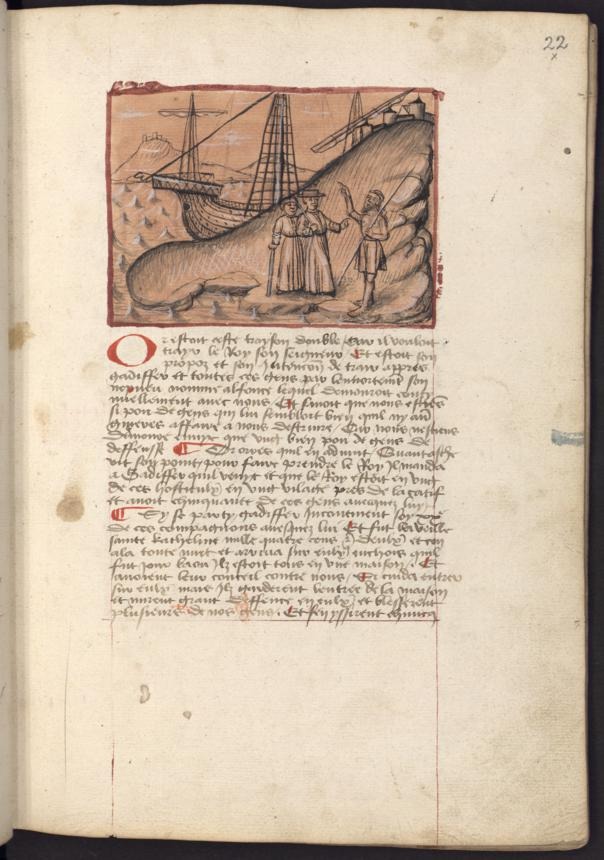 22
Or estoit ceste trayson double / Car il vouloit
trayr le Roy son seigneur Et estoit son
propoz et son Intencion de trayr apres
gadiffer et toutes ces gens par lennortement son
nepueu nomme alfonce lequel demouroit conty
nuellement avec nous Et sauoit que nous estiens
si pou de gens qui lui sembloit bien quil ny
guieres affaire a nous destruire / Car nous nestiens
demoure que vng bien pou de gens de
deffensse ¶ Or oyes quil en aduint / Quant asche
vit son point pour faire prendre le Roy Il manda
a Gadiffer quil venist et que le Roy estoit en vng
de ces en vng vilaige pres de lacatif
et auoit chinquante de ces gens auecque luy
¶ Sy se party gadiffer Incontinent soy xxe
de ces compagnons auecquez lui Et fut la veille
sainte katheline mille quatre cens deulx et en
ala toute nuit et arriua sur eulx enchois quil
fut jour la ou Ilz estoient tous en vne maison / Et
auoient leur conceil contre nous / Et cuida entrer
sur eulx mais Ilz garderent lentree de la maison
et mirent grant deffence en eulx et blesserent
plusieurs de nos gens / Et sen yssirent chincq